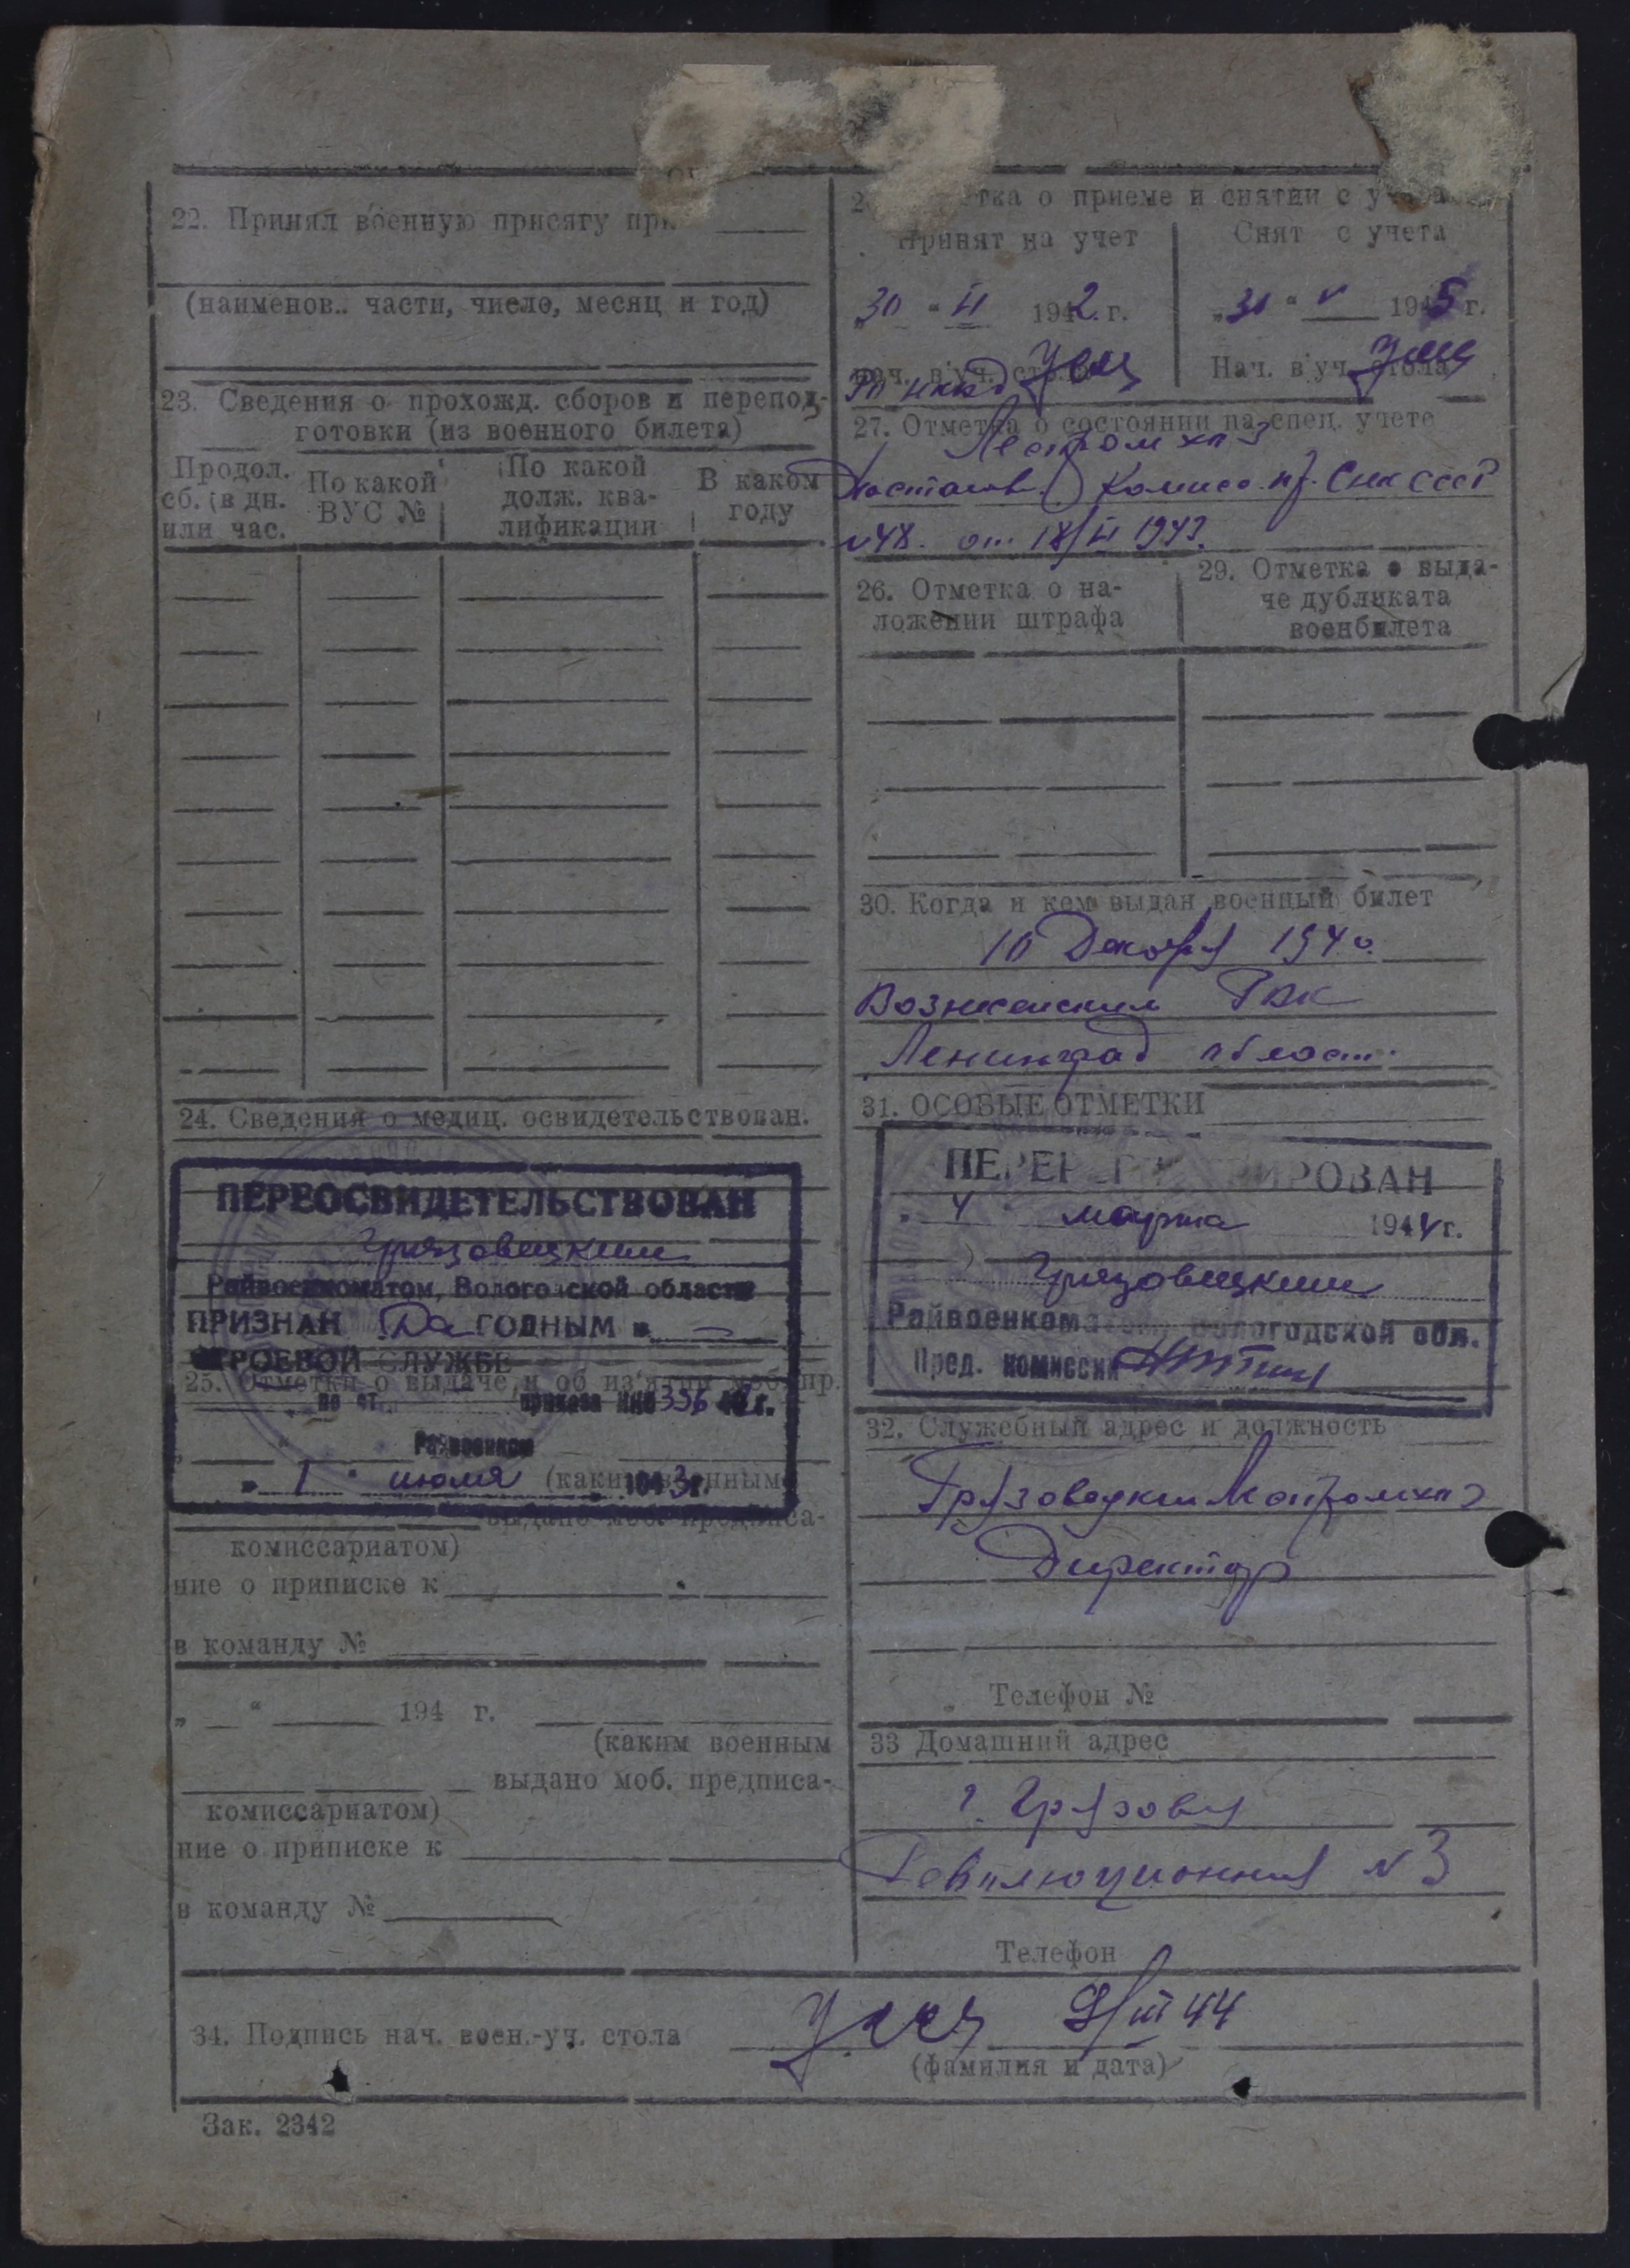 22. Принял военную присягу при
(наименов. части, число, месяц и год)
23. Сведения о прохожд. сборов и перепод-
готовки (из военного билета)
Продол. сб. (в дн. или час.
По какой ВУС №
По какой долж. квалификации
В каком году
24. Сведения о медиц. освидетельствован.
ПЕРЕОСВИДЕТЕЛЬСТВОВАН
Грязовецким
Райвоенкоматом, Вологодской области
ПРИЗНАН Да ГОДНЫМ к
СТРОЕВОЙ СЛУЖБЕ
25. Отметки о выдаче и об из'ятии моб. пр.
по ст. приказа НКО 336 42 г.
Райвоенком
" 1 " июля 1943 г.
(каким военным
выдано моб. предписа-
комиссариатом)
ние о приписке к
в команду №
" " 194 г.
(каким военным
выдано моб. предписа-
комиссариатом)
ние о приписке к
в команду №
тка о приеме и снятии с учета
Принят на учет
Снят с учета
"30 " II 1942 г.
"31 " V 1945 г.
Нач. в уч. стола
Нач. в уч. стола
27. Отметка о состоянии на спец. учете
Леспромхоз
Постанов. Комисс. пр. СНК СССР
№48. от 18/II 1943.
26. Отметка о на-
ложении штрафа
29. Отметка о выда-
че дубликата
военбилета
30. Когда и кем выдан военный билет
10 Декабря 1940.
Вознесенским РВК
Ленинград област.
31. ОСОБЫЕ ОТМЕТКИ
ПЕРЕРЕГИСТРИРОВАН
" 4 " марта 1944 г.
Грязовецким
Райвоенкоматом, Вологодской обл.
Пред. комиссии
32. Служебный адрес и должность
Грязовецкий Леспромхоз
Директор
Телефон №
33 Домашний адрес
г. Грязовец
Революционная №3
Телефон
34. Подпись нач. воен.-уч. стола
III 44
(фамилия и дата)
Зак. 2342